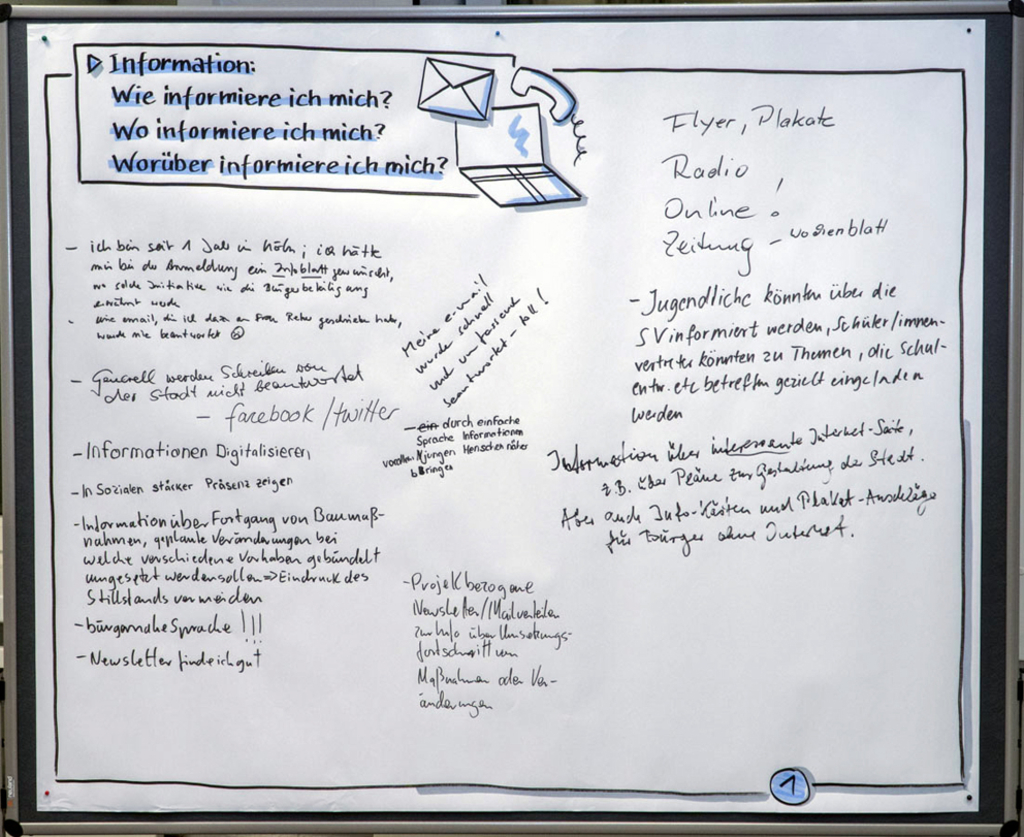 Information:
Wie informiere ich mich?
Wo informiere ich mich?
Worüber informiere ich mich?
- ich bin seit 1 Jahr in Köln; ich hätte
mir bei der Anmeldung ein Infoblatt gewünscht,
wo solche Initiative wie die Bürgerbeteiligung
erwähnt werde
- eine email, die ich dazu an Frau Reker geschrieben habe,
wurde nie beantwortet ☹
- Generell werden Schreiben von
der Stadt nicht beantwortet
- facebook/twitter
- Informationen Digitalisieren
- In Sozialen stärker Präsenz zeigen
- Information über Fortgang von Baumaß-
nahmen, geplante Veränderungen bei
welche verschiedene Vorhaben gebündelt
umgesetzt werden sollen => Eindruck des
Stillstands vermeiden
- bürgernahe Sprache !!!
- Newsletter finde ich gut
Meine e-mail
wurde schnell
und umfassend
beantwortet - toll!
- ein durch einfache
Sprache Informationen
vorallem jungen Menschen näher
bringen
- Projektbezogene
Newsletter/Mailverteiler
zur Info über Umsetzungs-
fortschritt von
Maßnahmen oder Ver-
änderungen
Flyer, Plakate
Radio
Online !
Zeitung - Wochenblatt
- Jugendliche könnten über die
SV informiert werden, Schüler/innen-
vertreter könnten zu Themen, die Schul-
entw. etc betreffen gezielt eingeladen
werden
Information über interessante Internet-Seite,
z.B. über Pläne zur Gestaltung der Stadt.
Aber auch Info-Kästen und Plakat-Anschläge
für Bürger ohne Internet.
1